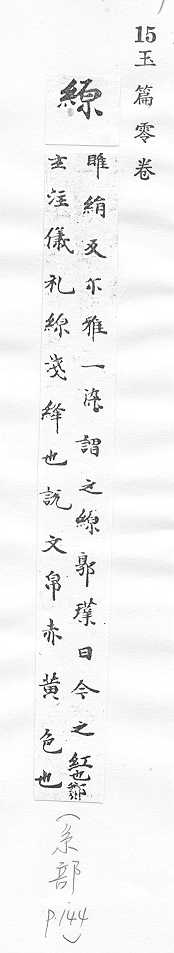 15玉篇零卷
縓
雎絹反尓雅一染謂之縓郭璞曰今之紅也鄭
玄注儀礼縓淺絳也説文帛赤黄色也
(糸部 p.144)